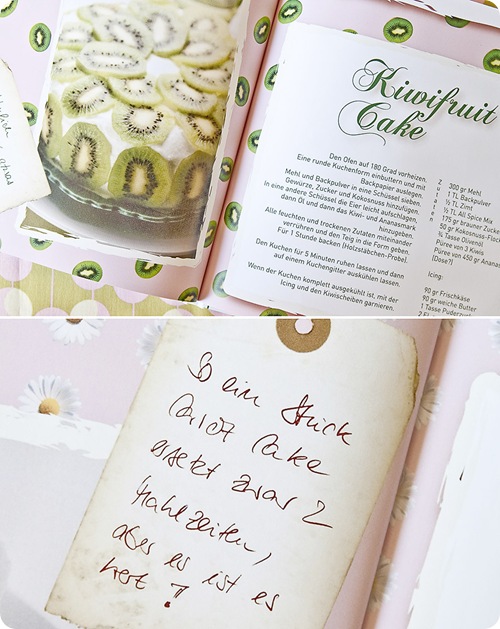 Kiwifruit
Cake
Den Ofen auf 180 Grad vorheizen.
Eine runde Kuchenform einbuttern und mit
Backpapier auslegen.
Mehl und Backpulver in eine Schüssel sieben.
Gewürze, Zucker und Kokosnuss hinzufügen.
In eine andere Schüssel die Eier leicht aufschlagen,
dann Öl und dann das Kiwi- und Ananasmark
hinzugeben.
Alle feuchten und trockenen Zutaten miteinander
verrühren und den Teig in die Form geben.
Für 1 Stunde backen (Holzstäbchen-Probe).
Den Kuchen für 5 Minuten ruhen lassen und dann
auf einem Kuchengitter auskühlen lassen.
Wenn der Kuchen komplett ausgekühlt ist, mit der
Icing und den Kiwischeiben garnieren.
Zutaten
300 gr Mehl
1 TL Backpulver
½ TL Zimt
½ TL All Spice Mix
175 gr brauner Zucker
50 gr Kokosnuss-
¾ Tasse Olivenöl
Püree von 3 Kiwis
Püree von 450 gr Ananas
(Dose?)
Icing:
90 gr Frischkäse
90 gr weiche Butter
1 Tasse Puderzucker
So ein Stück
Carrot Cake
ersetzt zwar 2
Mahlzeiten,
aber es ist es
wert!